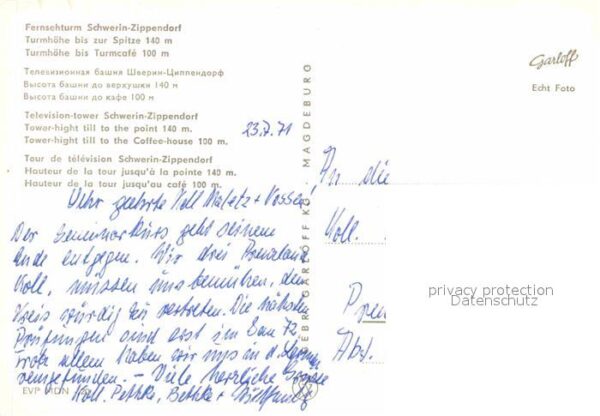 Fernsehturm Schwerin-Zippendorf
Turmhöhe bis zur Spitze 140 m
Turmhöhe bis Turmcafé 100 m
Телевизионная башня Шверин-Циппендорф
Высота башни до верхушки 140 м
Высота башни до кафе 100 м
Television-tower Schwerin-Zippendorf
Tower-hight till to the point 140 m.
Tower-hight till to the Coffee-house 100 m.
Tour de télévision Schwerin-Zippendorf
Hauteur de la tour jusqu'à la pointe 140 m.
Hauteur de la tour jusqu'au café 100 m.
GEBR. GARLOFF KG MAGDEBURG
Garloff
Echt Foto
23.7.71
Sehr geehrte Koll. + Vossen!
Der Seminarkurs geht seinem
Ende entgegen. Wir drei
Koll. müssen uns bemühen, den
Kreis würdig zu vertreten. Die nächsten
Prüfungen sind erst im Jan 72.
Trotz allem haben wir uns in d.
- Viele herzliche Grüße
Koll. Bethke +
An die
Koll.
Abt.
EVP MDN
privacy protection
Datenschutz